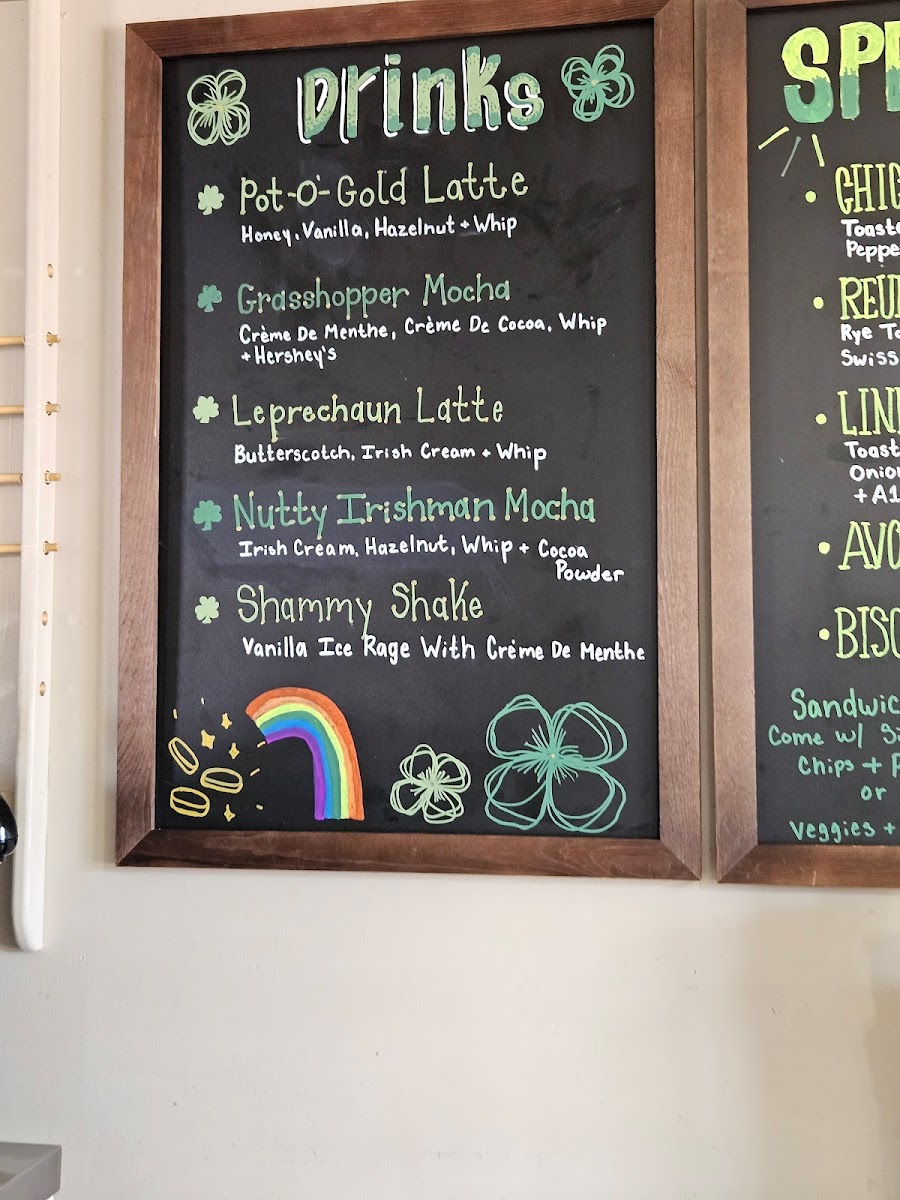 Drinks
Pot-O'-Gold Latte
Honey, Vanilla, Hazelnut + Whip
Grasshopper Mocha
Crème De Menthe, Crème De Cocoa, Whip
+ Hershey's
Leprechaun Latte
Butterscotch, Irish Cream + Whip
Nutty Irishman Mocha
Irish Cream, Hazelnut, Whip + Cocoa
Powder
Shammy Shake
Vanilla Ice Rage With Crème De Menthe
Rye
Swiss
+ A1
Come w/
Chips +
or
Veggies +